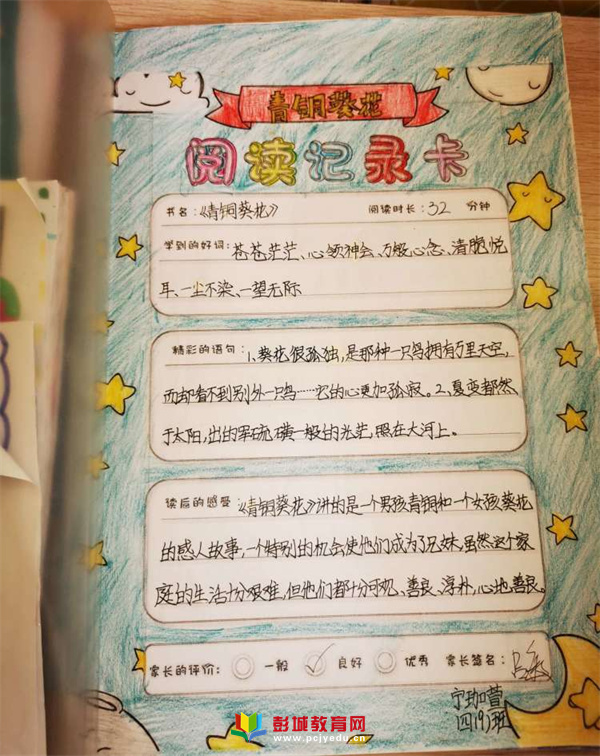 青铜葵花
阅读记录卡
书名：《青铜葵花》 阅读时长：32 分钟
学到的好词：苍苍茫茫、心领神会、万般心念、清脆悦
耳、一尘不染、一望无际
精彩的语句：1、葵花很孤独，是那种一只鸟拥有万里天空，
而却看不到别外一只鸟……它的心更加孤寂。2、夏
于太阳，出的 硫磺一般的光芒，照在大河上。
读后的感受：《青铜葵花》讲的是一个男孩青铜和一个女孩葵花
的感人故事，一个特别的机会使他们成为了兄妹，虽然这个家
庭的生活十分艰难，但他们都十分可 、善良、淳朴，心地善良。
家长的评价： 一般 良好 优秀 家长签名：
宁珈萱
四19班
彭城教育网
www.pcjyedu.cn